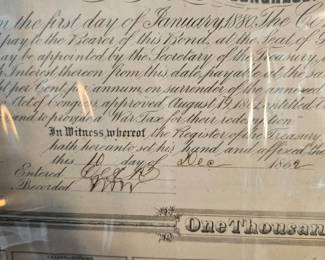 on the first day of January, 1880, The Co
pay to the Bearer of this Bond, at the Seat of G
may be appointed by the Secretary of the Treasury,
Interest thereon from this date, payable at the sa
per Cent per annum, on surrender of the annexed
Act of Congress approved August 19, 1861, entitled
and to provide a War Tax for their redemption"
In Witness whereof the Register of the Treasury
hath hereunto set his hand, and affixed the
this 10 day of Dec 1862
Entered
Recorded
One Thousan